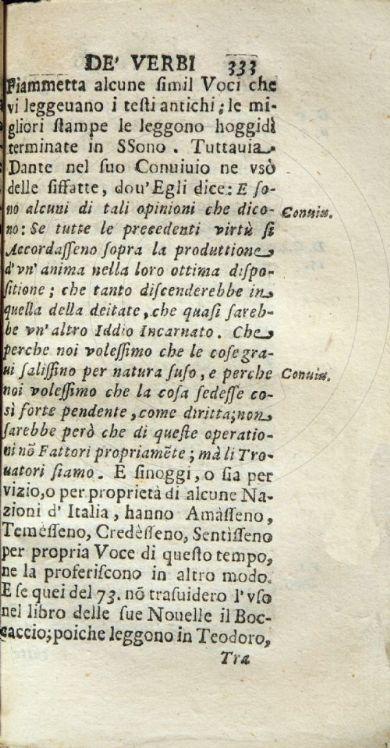 DE' VERBI 333
Fiammetta alcune ſimil Voci che
vi leggeuano i teſti antichi; le mi-
gliori ſtampe le leggono hoggidì
terminate in SSono. Tuttauia
Dante nel ſuo Conuiuio ne vsò
delle ſiffatte, dou'Egli dice: E ſo-
no alcuni di tali opinioni che dico- Conuiu.
no: Se tutte le precedenti virtù ſi
Accordaſſeno ſopra la produttione
d'vn'anima nella loro ottima diſpo-
ſitione; che tanto diſcenderebbe in
quella della deitate, che quaſi ſareb-
be vn'altro Iddio Incarnato. Che
perche noi voleſſimo che le coſe gra-
ui ſaliſſino per natura ſuſo, e perche Conuiu.
noi voleſſimo che la coſa ſedeſſe co-
sì forte pendente, come diritta; non
ſarebbe però che di queſte operatio-
ni nõ Fattori propriamẽte; mà li Tro-
uatori ſiamo. E ſinoggi, o ſia per
vizio, o per proprietà di alcune Na-
zioni d' Italia, hanno Amàſſeno,
Temèſſeno, Credèſſeno, Sentìſſeno
per propria Voce di queſto tempo,
ne la proferiſcono in altro modo.
E ſe quei del 73. nõ trasuidero l'vſo
nel libro delle ſue Nouelle il Boc-
caccio; poiche leggono in Teodoro,
Tra